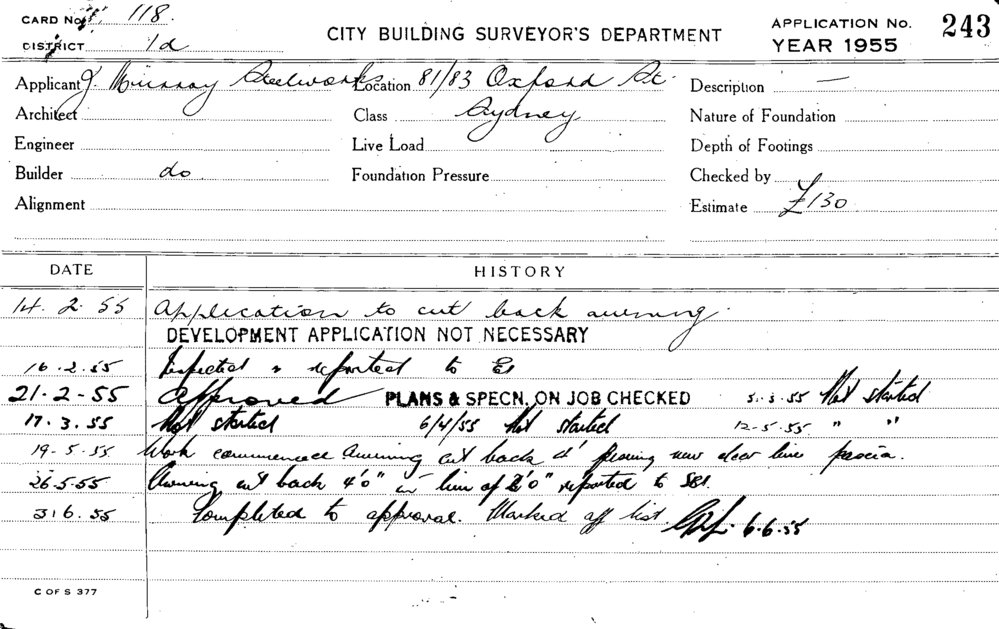 CARD No. 118.
DISTRICT 1d
CITY BUILDING SURVEYOR'S DEPARTMENT
APPLICATION No. 243
YEAR 1955
Applicant J. Murray Steelworks Location 81/83 Oxford St. Description —
Architect Class Sydney Nature of Foundation
Engineer Live Load Depth of Footings
Builder do Foundation Pressure Checked by
Alignment Estimate £130
DATE HISTORY
14. 2. 55 Application to cut back awning.
DEVELOPMENT APPLICATION NOT NECESSARY
16.2.55 Inspected & reported to
21-2-55 Approved PLANS & SPECN. ON JOB CHECKED 5.3.55 Not started
17.3.55 Not started 6/4/55 Not started 12-5-55 " "
19-5-55 Work commenced Awning cut back 4' new line fascia.
26.5.55 Awning cut back 4'0" in line of 2'0" reported to
3.6.55 Completed to approval. Marked off list. 6.6.55
C OF S 377